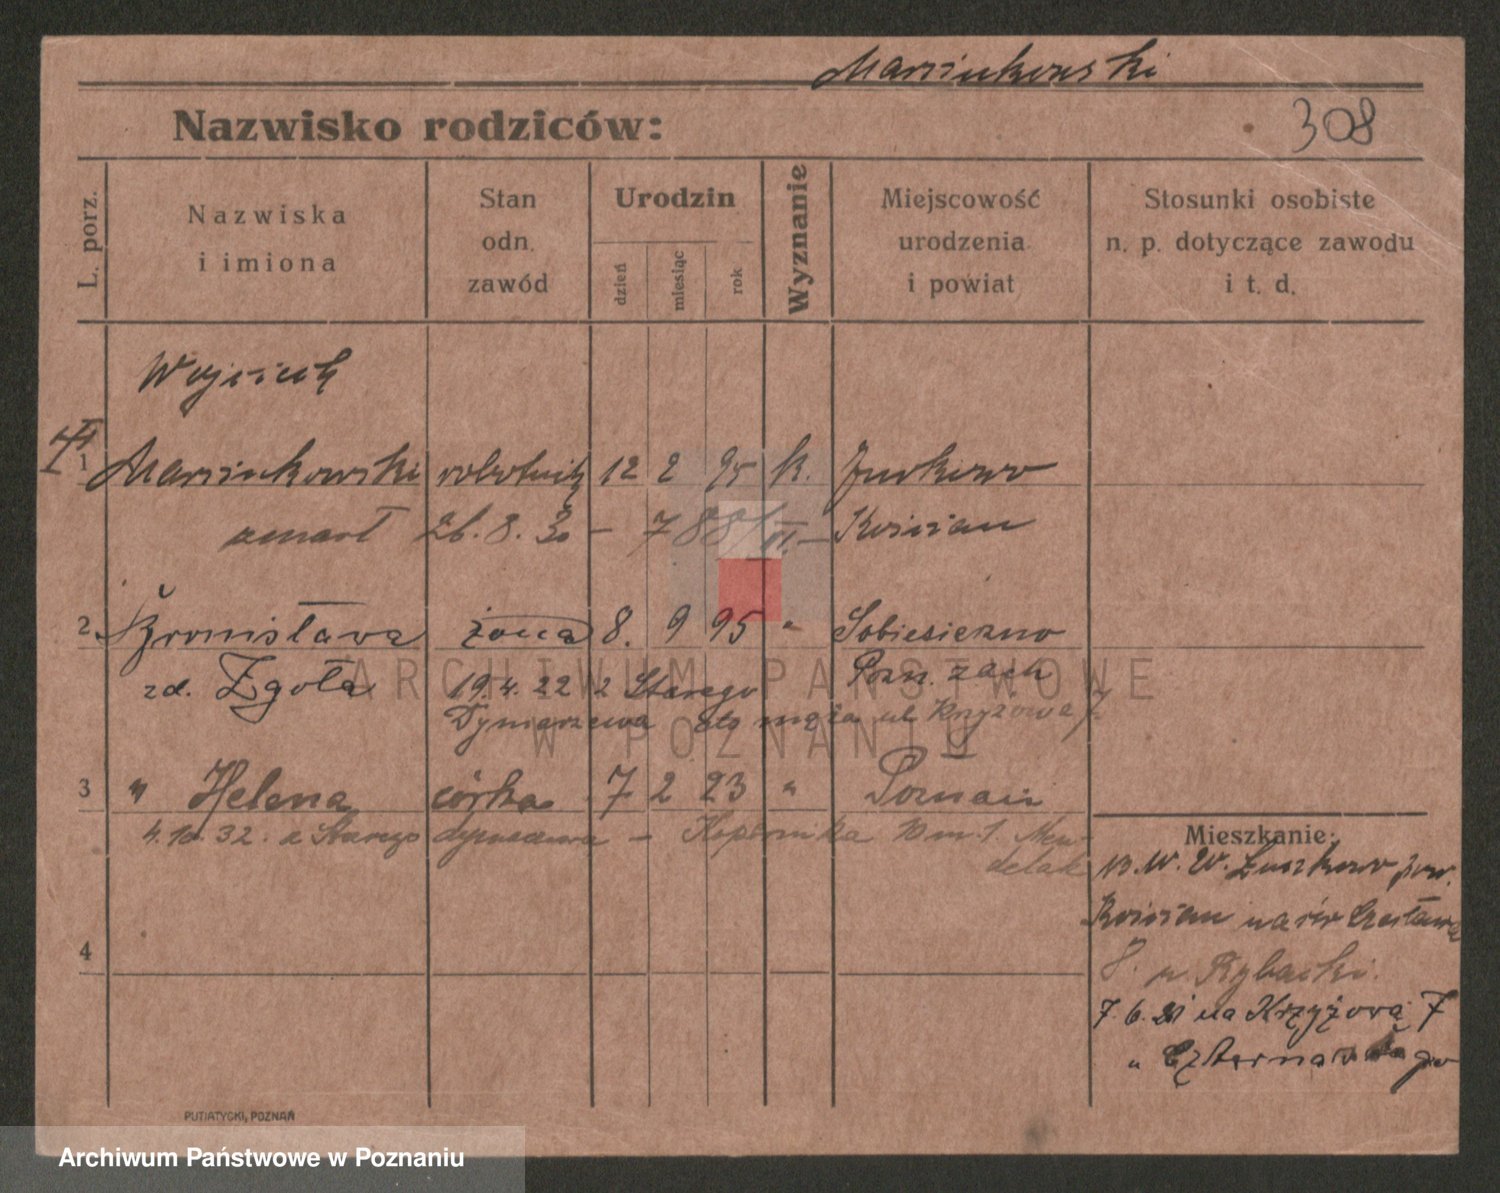 Marcinkowski
Nazwisko rodziców:
308
L. porz.
Nazwiska
i imiona
Stan
odn.
zawód
Urodzin
dzień
miesiąc
rok
Wyznanie
Miejscowość
urodzenia
i powiat
Stosunki osobiste
n. p. dotyczące zawodu
i t. d.
Wojciech
1 Marcinkowski robotnik 12 2 95 k. Jurkowo
zmarł 26. 8. 30 – 788/III. – Kościan
2 Bronisława żona 8. 9 95 " Sobiesierno
zd. Zgoła 19.4.22 z Starego Pozn. zach
Dymarzewa do męża ul Krzyżowa 7
3 " Helena córka 7 2 23 " Poznań
4.10.32. z Starego dymarzewa – Kopernika 10 m 1.
Mieszkanie:
13.10.20. Łuszkowo pow.
Kościan na św Czesława
8. u Rybacki.
7.6.21 na Krzyżową 7
u
4
PUTIATYCKI, POZNAŃ
ARCHIWUM PAŃSTWOWE
W POZNANIU
Archiwum Państwowe w Poznaniu